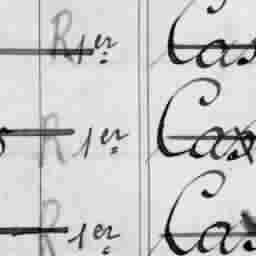 R 1er Cas
R 1er Cas
R 1er Cas